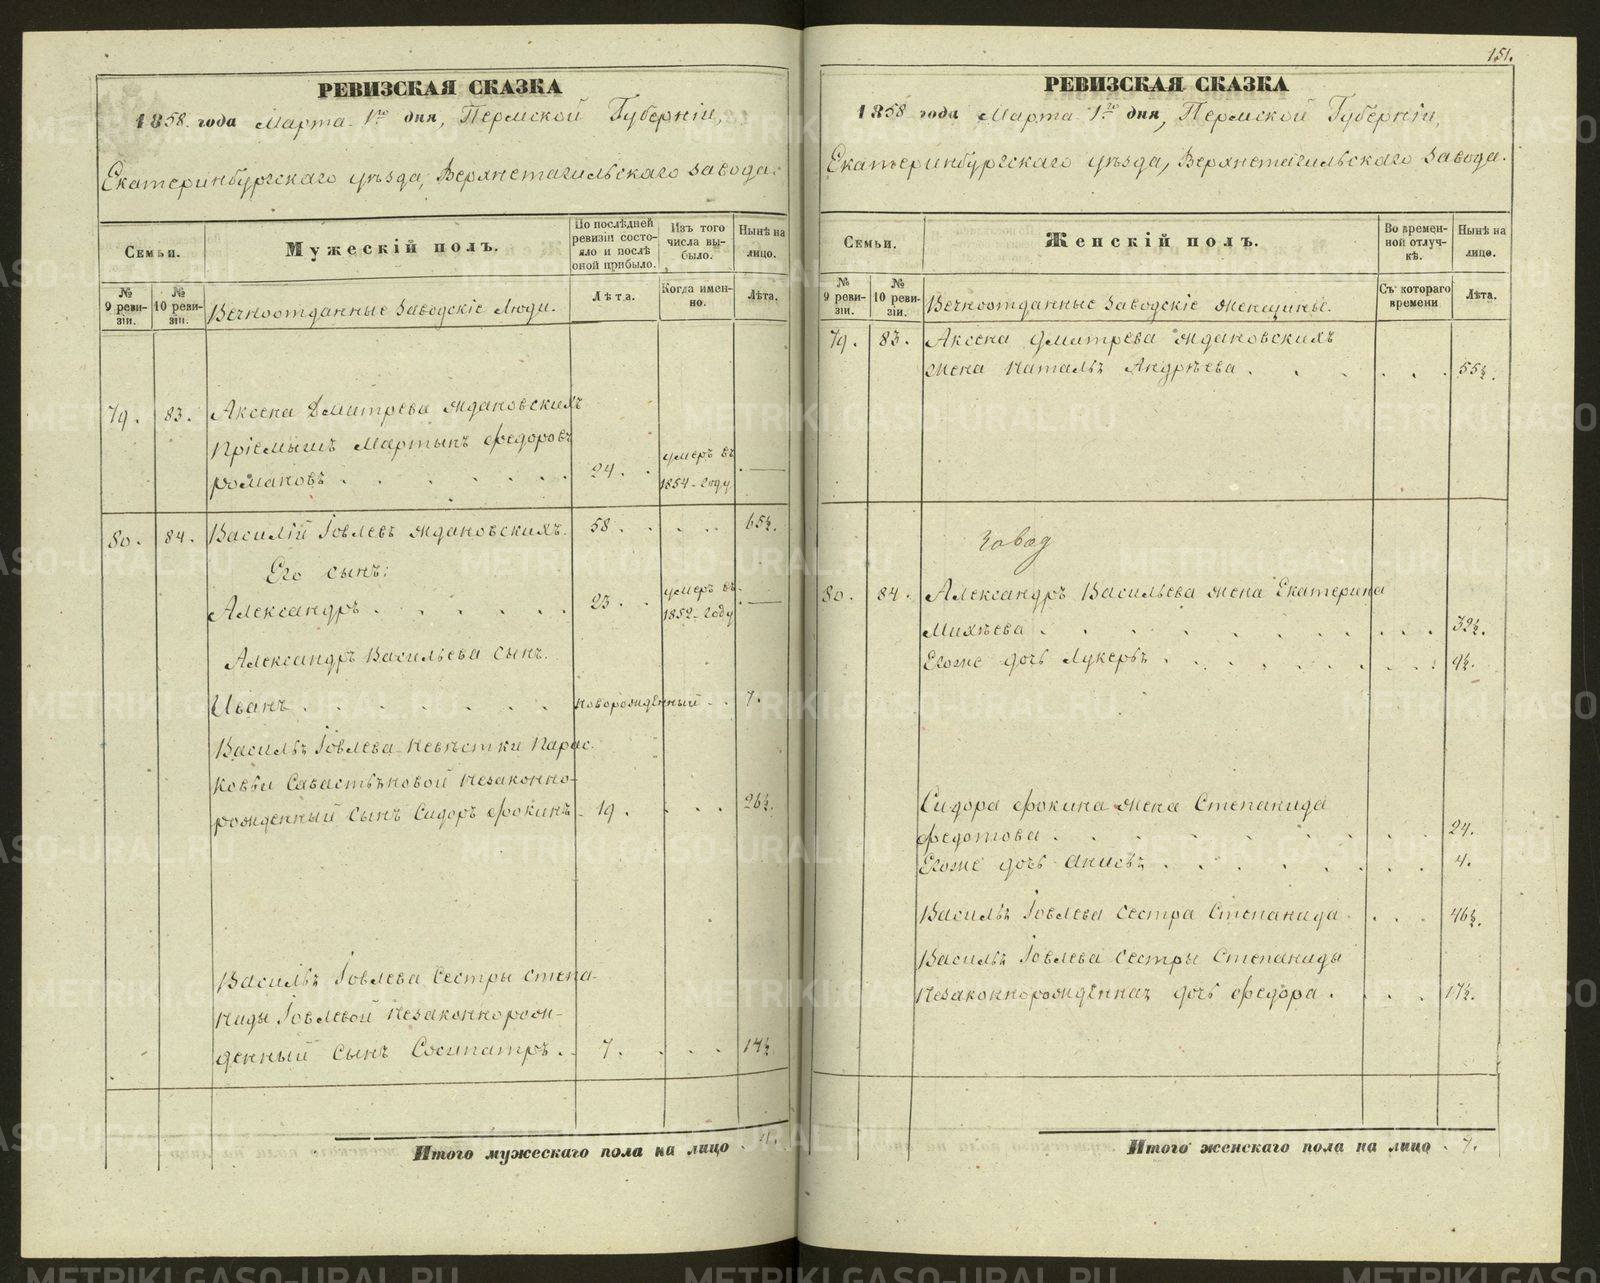 РЕВИЗСКАЯ СКАЗКА
1858 года Марта 1го дня, Пермской Губерніи,
Екатеринбургскаго уѣзда, Верхнетагильскаго завода.
Семьи.
Мужескій полъ.
По послѣдней ревизіи состояло и послѣ оной прибыло.
Изъ того числа выбыло.
Нынѣ на лицо.
№ 9 ревизіи.
№ 10 ревизіи.
Вечноотданные Заводскіе Люди.
Лѣта.
Когда именно.
Лѣта.
79. 83. Аксена Дмитрева Ждановскихъ
Пріемышъ Мартынъ Федоровъ
Романовъ . . . . . . 24. умеръ въ 1854 году —
80. 84. Василій Іовлевъ Ждановскихъ. 58. . . . 65½.
Его сынъ:
Александръ . . . . . . 23. умеръ въ 1852 году —
Александръ Васильева сынъ.
Иванъ . . . . . . . новорожденный . . 7.
Василья Іовлева невѣстки Парас-
ковьи Савастьяновой незаконно-
рожденный сынъ Сидоръ Фокинъ 19. . . 26½.
Василья Іовлева сестры Степа-
ниды Іовлевой незаконнорож-
денный сынъ Сосипатръ. 7. . . . 14½
Итого мужескаго пола на лицо . 4.
151.
РЕВИЗСКАЯ СКАЗКА
1858 года Марта 1го дня, Пермской Губерніи,
Екатеринбургскаго уѣзда, Верхнетагильскаго завода.
Семьи.
Женскій полъ.
Во временной отлучкѣ.
Нынѣ на лицо.
№ 9 ревизіи.
№ 10 ревизіи.
Вечноотданные Заводскіе женщины.
Съ котораго времени
Лѣта.
79. 83. Аксена Дмитрева Ждановскихъ
жена Наталья Андрѣева . . . . . . 55½.
завод
80. 84. Александръ Васильева жена Екатерина
Михѣева . . . . . . . . . . . 32½.
Егоже дочь Лукерья . . . . . . . . 9½.
Сидора Фокина жена Степанида
Федотова . . . . . . . . . . 24.
Егоже дочь Анисья . . . . . . . . 4.
Василья Іовлева сестра Степанида . . . 46½.
Василья Іовлева сестры Степаниды
незаконнорожденная дочь Федора . . . . 17½.
Итого женскаго пола на лицо . 7.
METRIKI.GASO-URAL.RU